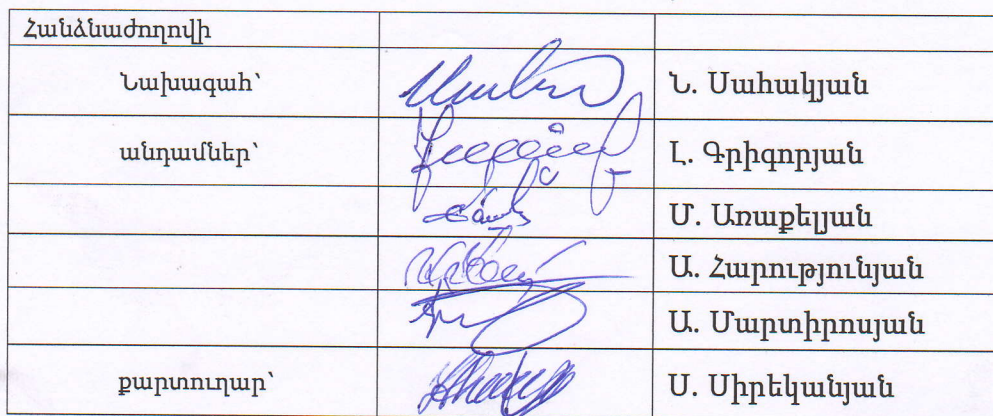 Հանձնաժողովի
Նախագահ՝ Ն. Սահակյան
անդամներ՝ Լ. Գրիգորյան
Մ. Առաքելյան
Ա. Հարությունյան
Ա. Մարտիրոսյան
քարտուղար՝ Ս. Սիրեկանյան